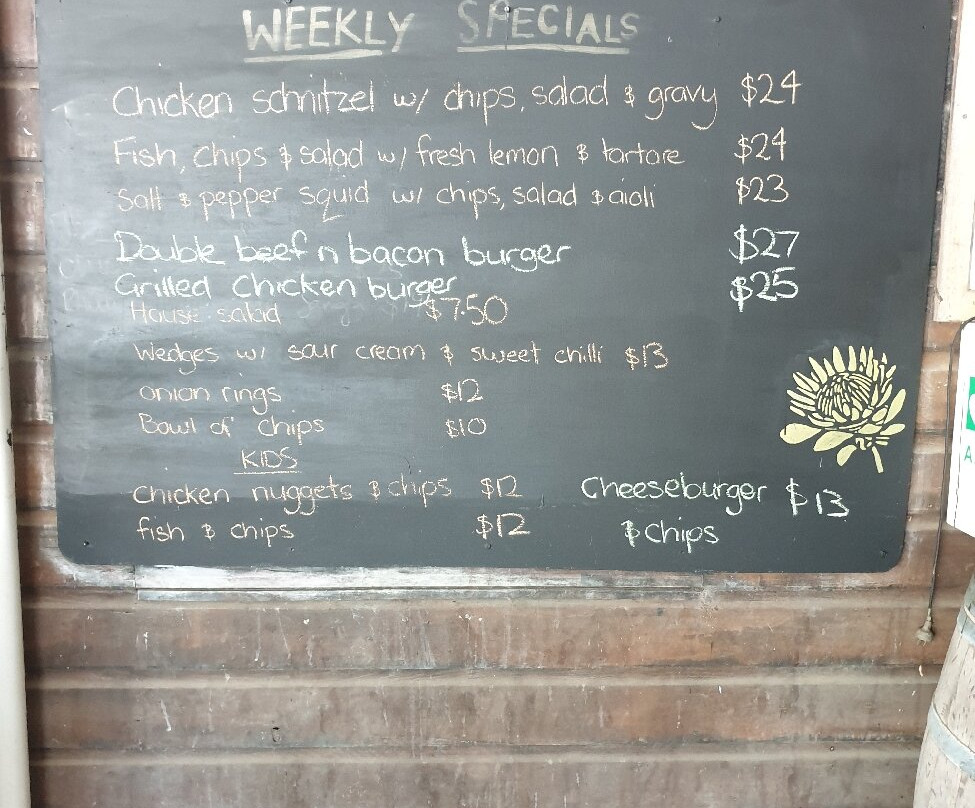 WEEKLY SPECIALS
Chicken schnitzel w/ chips, salad & gravy $24
Fish, chips & salad w/ fresh lemon & tartare $24
Salt & pepper squid w/ chips, salad & aioli $23
Double beef n bacon burger $27
Grilled Chicken burger $25
House salad $7.50
Wedges w/ sour cream & sweet chilli $13
onion rings $12
Bowl of chips $10
KIDS
chicken nuggets & chips $12
fish & chips $12
Cheeseburger $13
& chips
A